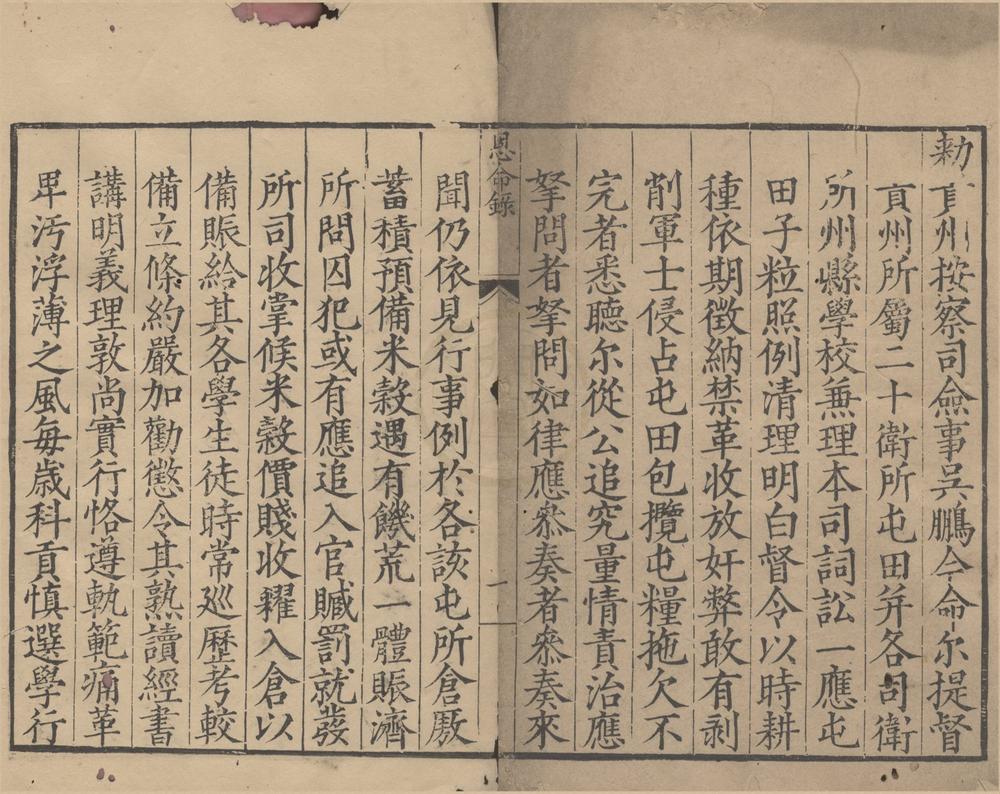 勑貢州按察司僉事吳鵬今命尓提督
貢州所屬二十衛所屯田并各司衛
所州縣學校兼理本司詞訟一應屯
田子粒照例清理明白督令以時耕
種依期徵納禁革收放奸弊敢有剥
削軍士侵占屯田包攬屯糧拖欠不
完者悉聽尓從公追究量情責治應
拏問者拏問如律應叅奏者叅奏來
恩命錄
一
聞仍依見行事例於各該屯所倉厫
蓄積預備米糓遇有饑荒一體賑濟
所問囚犯或有應追入官贓罰就發
所司收掌候米糓價賤收糴入倉以
備賑給其各學生徒時常廵歷考較
備立條約嚴加勸懲令其熟讀經書
講明義理敦尚實行恪遵軌範痛革
卑污浮薄之風每歲科貢慎選學行